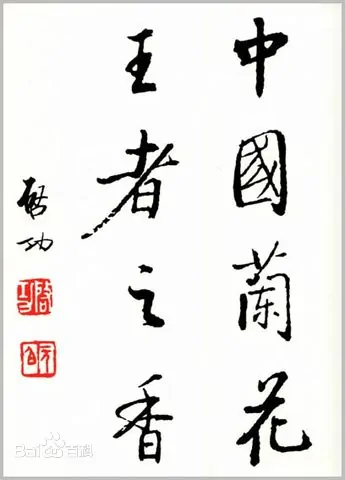 中國蘭花
王者之香
啓功
Baidu百科